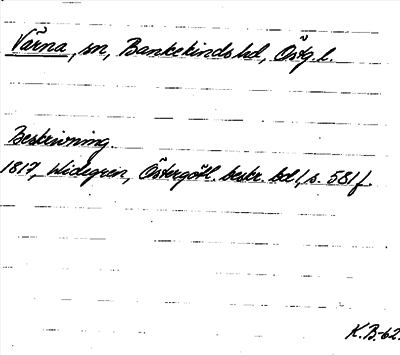 Värna, sn, Bankekinds hd, Östg. l.
Beskrivning.
1817, Widegren, Östergötl. beskr. bd 1, s. 581 f.
K.B-62.